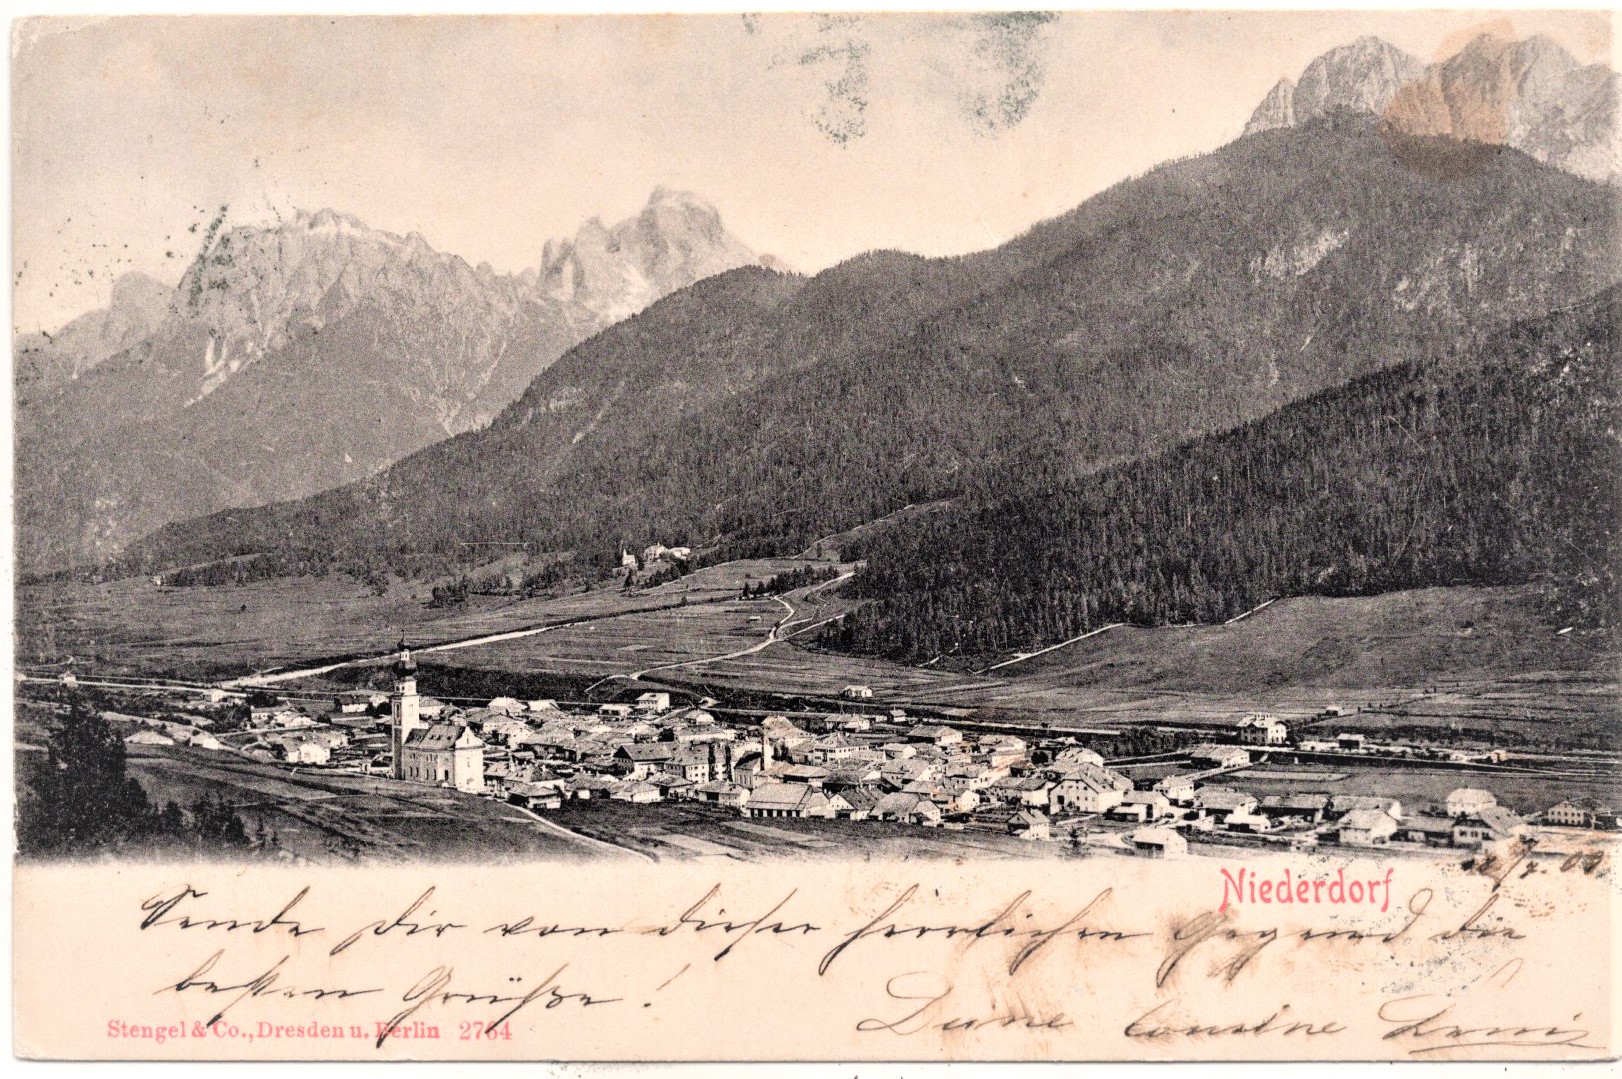 Niederdorf
Sende Dir von dieser herrlichen Gegend die
besten Grüße!
Deine Cousine
Stengel & Co., Dresden u. Berlin 2764